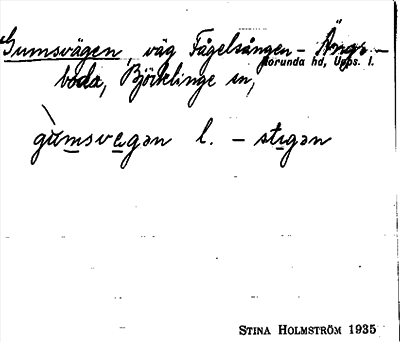 Gumsvägen, väg Fågelsången – Ängs-
Norunda hd, Upps. l.
boda, Björklinge sn,
gumsvegən l. – stigən
STINA HOLMSTRÖM 1935